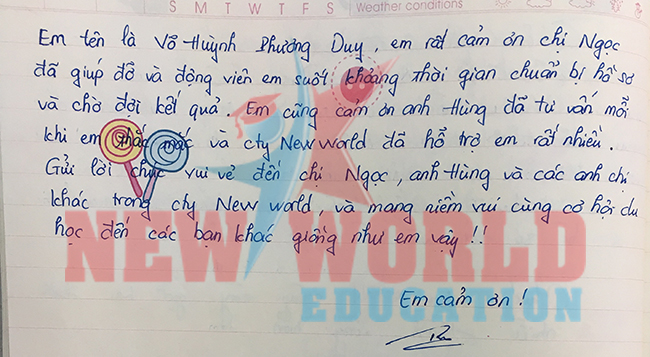 S M T W T F S Weather conditions
Em tên là Võ Huỳnh Phương Duy, em rất cảm ơn chị Ngọc
đã giúp đỡ và động viên em suốt khoảng thời gian chuẩn bị hồ sơ
và chờ đợi kết quả. Em cũng cảm ơn anh Hùng đã tư vấn mỗi
khi em thắc mắc và cty New World đã hỗ trợ em rất nhiều.
Gửi lời chúc vui vẻ đến chị Ngọc, anh Hùng và các anh chị
khác trong cty New World, và mang niềm vui cùng cơ hội du
học đến các bạn khác giống như em vậy !!
NEW WORLD
EDUCATION
Em cảm ơn !